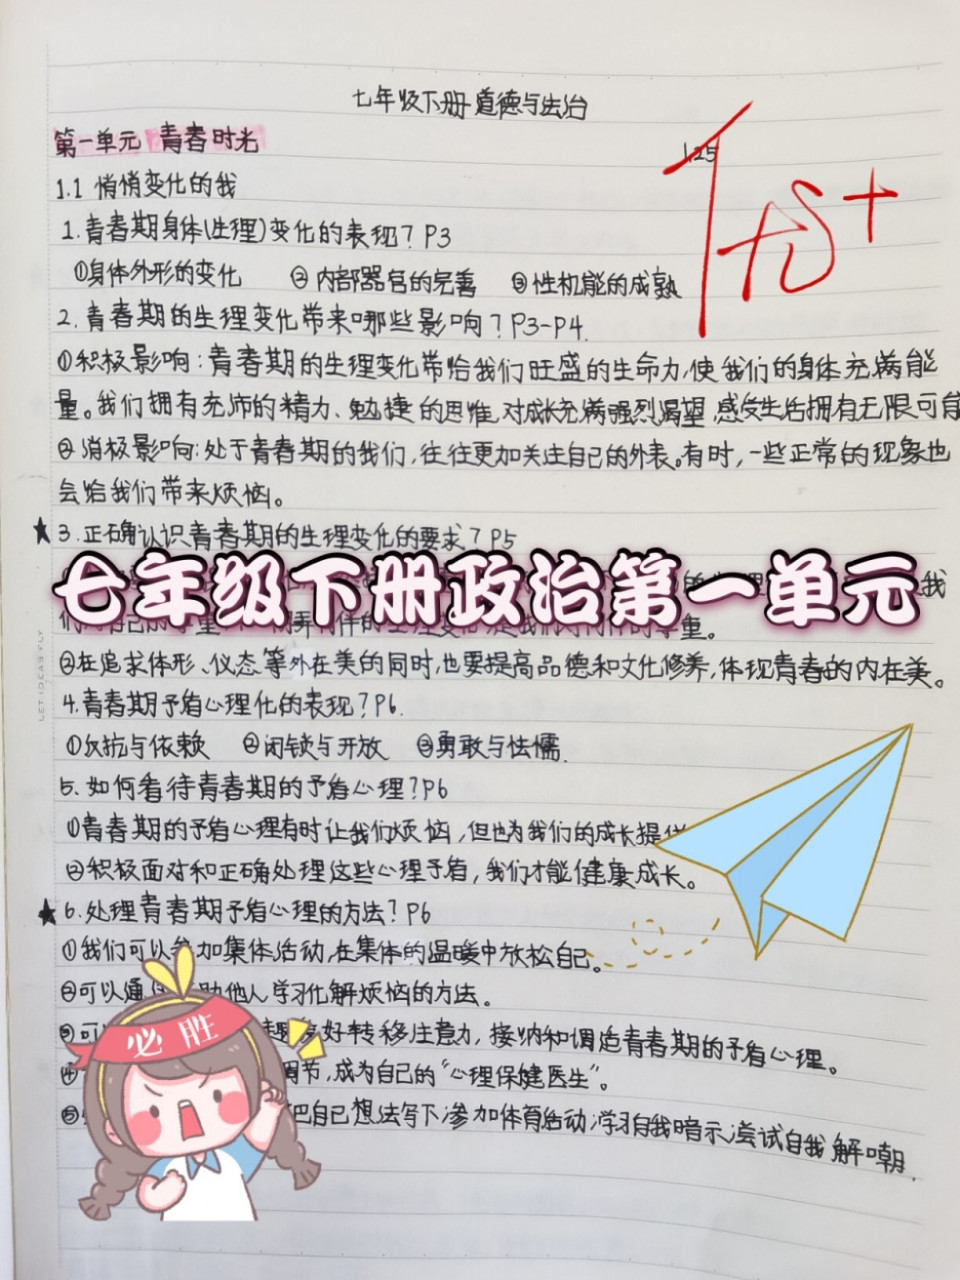 七年级下册道德与法治
第一单元 青春时光
1.25
优+
1.1 悄悄变化的我
1.青春期身体(生理)变化的表现？P3
①身体外形的变化 ②内部器官的完善 ③性机能的成熟
2.青春期的生理变化带来哪些影响？P3-P4.
①积极影响：青春期的生理变化带给我们旺盛的生命力,使我们的身体充满能
量。我们拥有充沛的精力、勉捷的思维,对成长充满强烈渴望,感受生活拥有无限可能
②消极影响:处于青春期的我们,往往更加关注自己的外表。有时,一些正常的现象也
会给我们带来烦恼。
★3.正确认识青春期的生理变化的要求？P5
七年级下册政治第一单元
我
重。
②在追求体形、仪态等外在美的同时,也要提高品德和文化修养,体现青春的内在美。
LET IDEAS FLY
4.青春期矛盾心理化的表现？P6.
①反抗与依赖 ②闭锁与开放 ③勇敢与怯懦.
5.如何看待青春期的矛盾心理?P6
①青春期的矛盾心理有时让我们烦恼,但也为我们的成长提供
②积极面对和正确处理这些心理矛盾,我们才能健康成长。
★6.处理青春期矛盾心理的方法？P6
①我们可以参加集体活动,在集体的温暖中放松自己。
②可以通 助他人学习化解烦恼的方法。
③可 好转移注意力,接纳和调适青春期的矛盾心理。
④ 调节,成为自己的“心理保健医生”。
⑤ 把自己想法写下,参加体育活动,学习自我暗示,尝试自我解嘲.
必胜